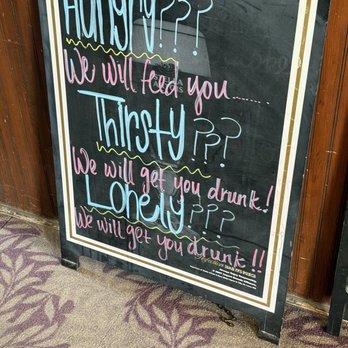 Hungry???
We will feed you......
Thirsty???
We will get you drunk!
Lonely???
We will get you drunk!!